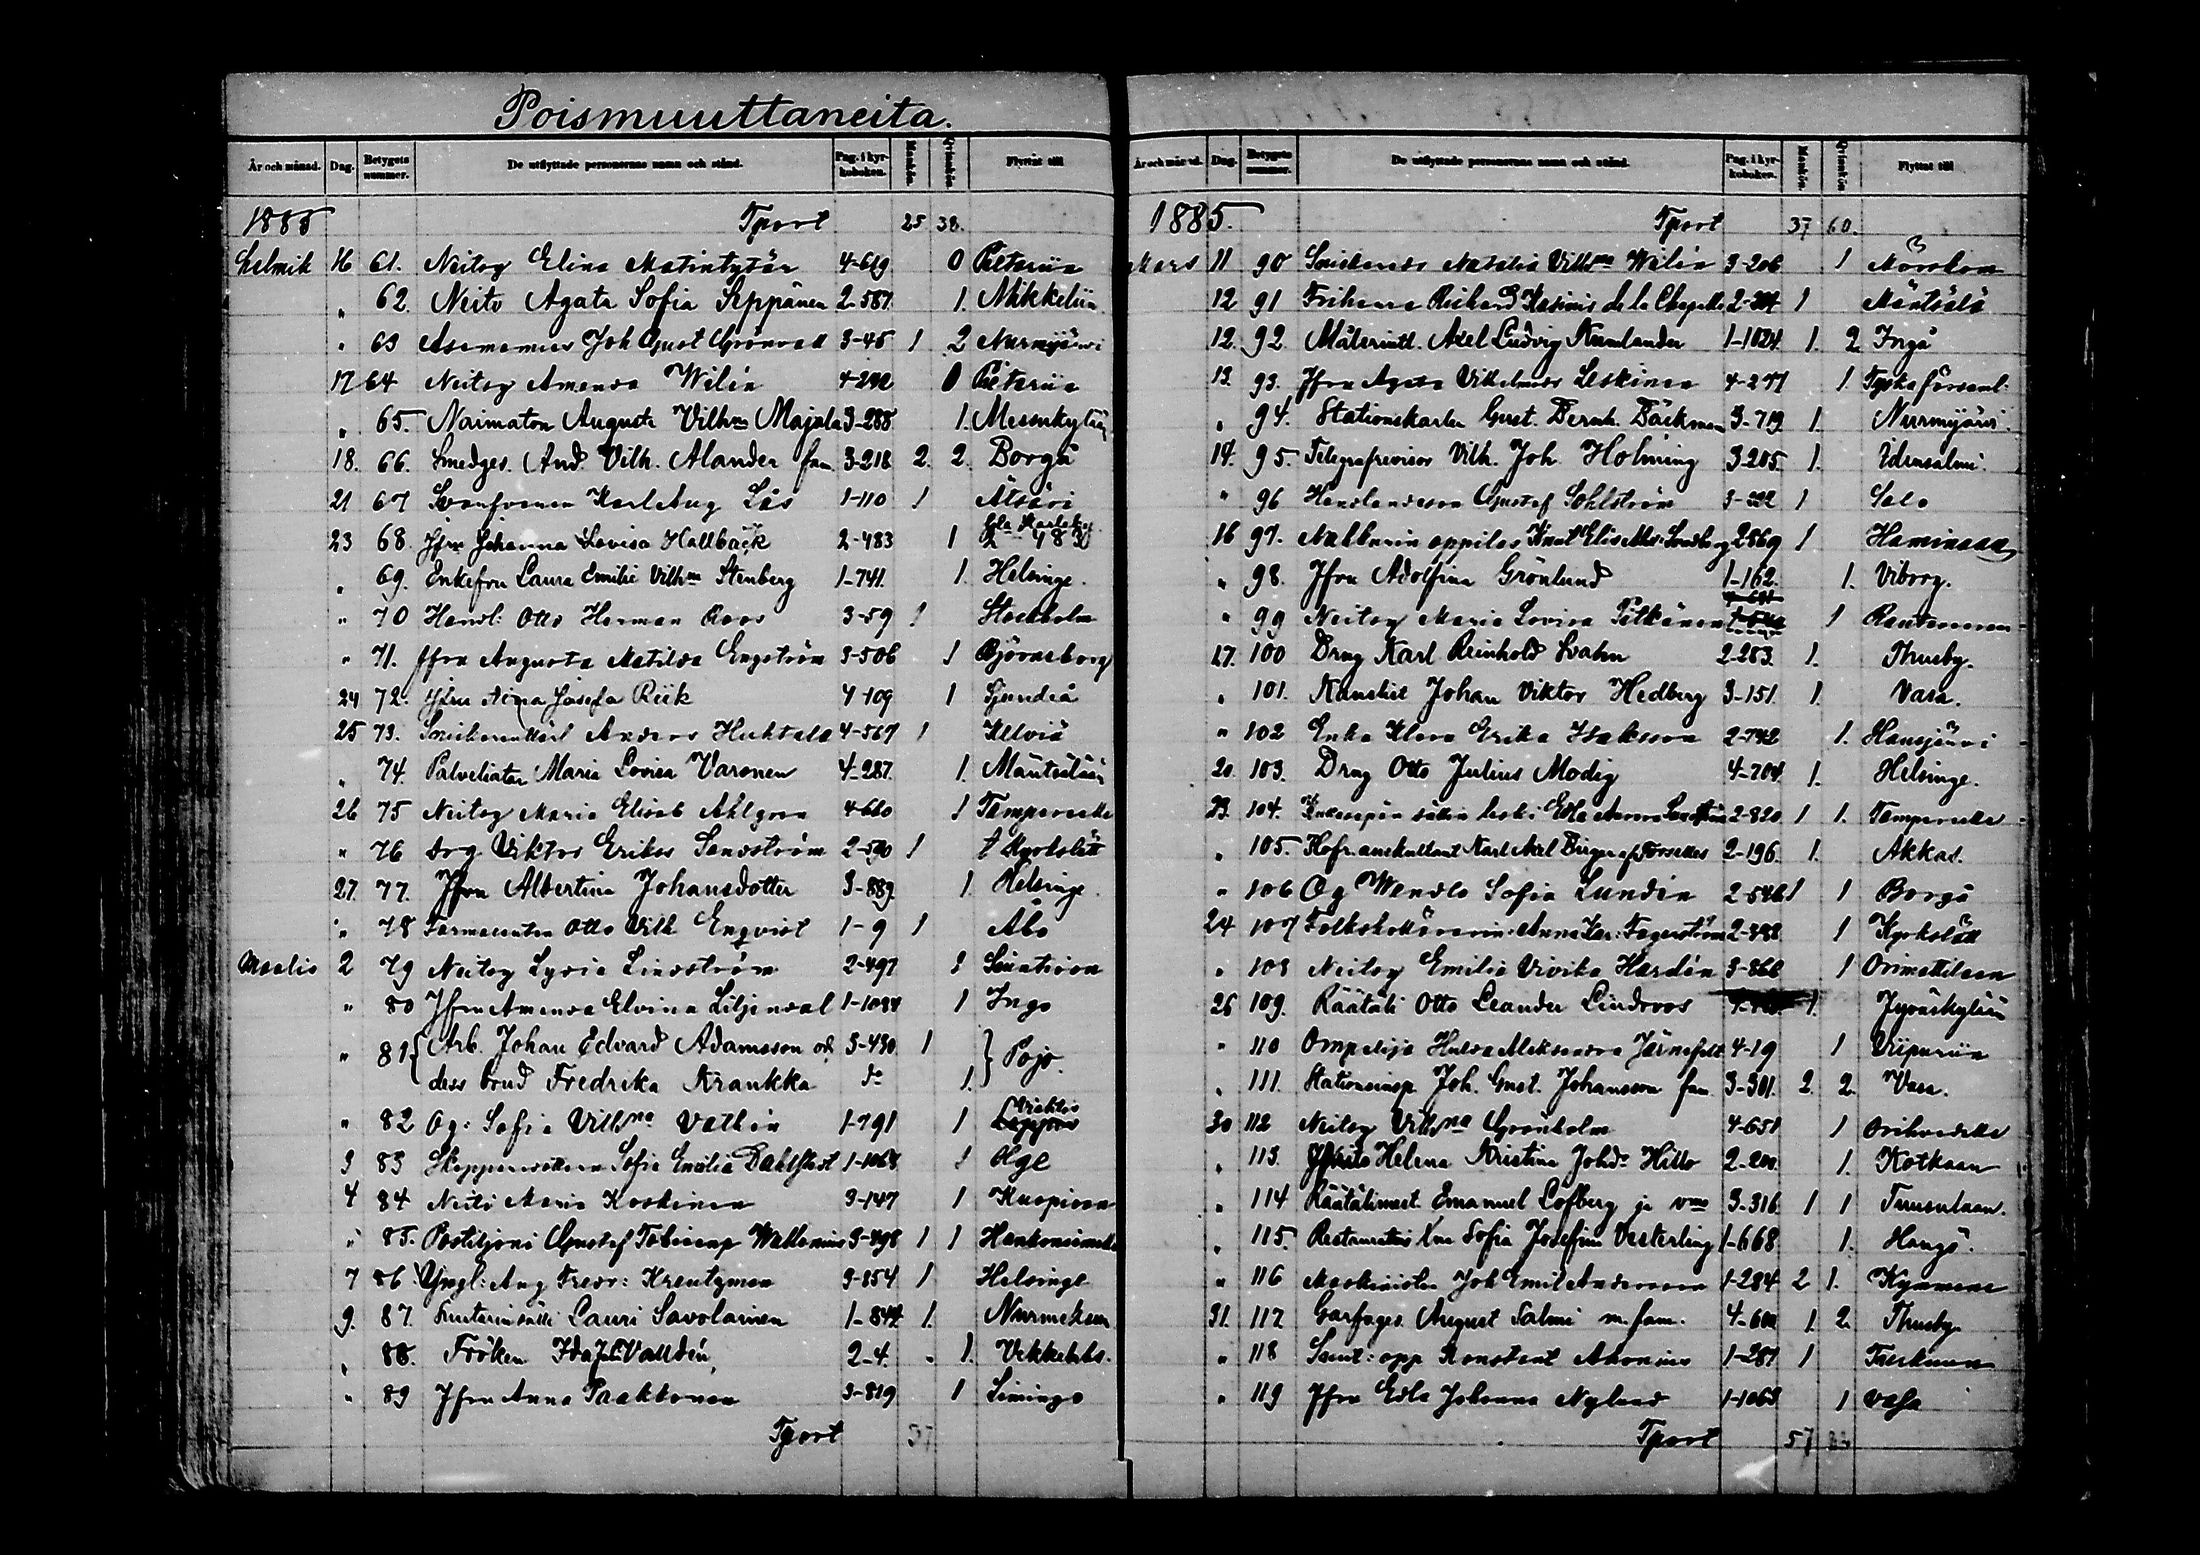 Poismuuttaneita.
År och månad. Dag. Betygets nummer. De utflyttade personernas namn och stånd. Pag. i kyrkoboken. Mankön. Qvinkön. Flyttat till
1885 Tport 25 38.
Helmik 16 61. Neitsy Elina Matintytär 4-619 0 Pietariin
" 62. Neito Agata Sofia Seppänen 2-587. 1. Mikkeliin
" 63 Asemamies Joh Gust Grönvall 3-45 1 2 Nurmijärvi
17 64 Neitsy Amanda Wilén 4-242 0 Pietariin
" 65. Naimaton Augusta Vilhma Majala 3-288 1.
18. 66. Smedges. And. Vilh. Alander fam. 3-218 2. 2. Borgå
21 67 Karl Aug Lås 1-110 1 Ätsäri
23 68. Jfru Johanna Lovisa Hallbäck 2-483 1
" 69. Enkefru Laura Emilie Vilhma Stenberg 1-741. 1. Helsinge.
" 70 Handl: Otto Herman Roos 3-59 1 Stockholm
" 71. Jfru Augusta Matilda Engström 3-506 1 Björneborg
24 72. Jfru Josefa Riik 4-109 1 Sjundeå
25 73. Anders Huhtala 4-567 1 Kelviå
" 74. Palveliatar Maria Lovisa Varonen 4-287. 1. Mäntsälään
26 75 Neitsy Maria Elisab Ahlgren 4-660 1 Tampereelle
" 76 Drg Viktor Erikss Sandström 2-590 1 Kyrkslätt
27. 77. Jfru Albertina Johansdotter 3-889. 1. Helsinge.
" 78 Farmaceuten Otto Vilh Enqvist 1-9 1 Åbo
Maalis 2 79 Neitsy Lydia Lindström 2-497 1 Siuntioon
" 80 Jfru Amanda Elvira Liljendal 1-1084 1 Ingo
" 81 { Arb. Johan Edvard Adamsson o. 3-430 1 } Pojo.
dess brud Fredrika Krankka do 1.
" 82 Og: Sofia Vilhma Vatlin 1-791 1
3 83 Sofia Emilia Dahlstedt 1-1068 1
4 84 Neiti Maria Koskinen 3-147 1 Kuopioon
" 85. Postiljoni Gustaf 3-498 1 1
7 86 Yngl: Aug Fredr: Kreutzman 3-854 1 Helsinge
9. 87. Lauri Savolainen 1-844 1.
" 88. Fröken Ida Valldén 2-4. 1.
" 89 Jfru Anna Paakkonen 3-819 1 Limingo
Tport 37
År och månad. Dag. Betygets nummer. De utflyttade personernas namn och stånd. Pag. i kyrkoboken. Mankön. Qvinkön. Flyttat till
1885. Tport 37 60.
Mars 11 90 Natalia Vilhma Wilén 3-206 1 Mörskom
12 91 Friherre Rickard Kasimir de la Chapelle 1 Mäntsälä
12. 92. Axel Ludvig Kumlander 1-1024. 1. 2 Ingå
13. 93. Jfru Agata Vilhelmina Leskinen 4-277 1. Tyska församl:
" 94. Stationskarlen Gust. Bernh. Bäckman 3-719 1. Nurmijärvi.
14. 95. Telegrafrevisor Vilh. Joh. Holming 3-205. 1. Idensalmi.
" 96 Handlanden Gustaf Sohlström 1 Salo
16 97. 2-869 1 Haminaan
" 98. Jfru Adolfina Grönlund 1-162. 1. Viborg.
" 99 Neitsy Maria Lovisa Pitkänen 1
17. 100 Drng Karl Reinhold Svahn 2-283. 1. Thusby.
" 101. Kanslist Johan Viktor Hedberg 3-151 1. Vasa.
" 102 Enka Klara Erika Isaksson 2-742 1. Hausjärvi
20. 103. Drng Otto Julius Modig 4-704. 1. Helsinge.
23. 104. 2-820 1 1. Tampereelle
" 105. Karl Axel Birger af Forselles 2-196. 1. Akkas.
" 106 Og Wendla Sofia Lundin 2-546 1 1 Borgå
24 107 Folkskollärarin: Anna Kar: Fagerström 1 Kyrkslätt
" 108 Neitsy Emilia Vivika Hardén 3-866 1 Orimattilaan
26 109. Räätäli Otto Leander Lindroos 1. Jyväskylään
" 110 Ompelija Hulda Aleksandra Järnefelt 4-19 1 Viipuriin
" 111. Stationsinsp. Joh. Gust. Johansson fam. 3-301. 2. 2. Vasa.
30 112 Neitsy Vilhma Grönholm 4-651 1 Orihvedelle
" 113. Helena Kristina Johd: Hillo 2-200. 1. Kotkaan
" 114 Räätälimest. Emanuel Löfberg ja vmo 3-316. 1 1 Tuusulaan.
" 115. Sofia Josefina Vesterling 1-668. 1. Hangö.
" 116 Maskinisten Joh Emil Andersson 1-284 2 1. Kymmene
31. 117. Garfvages. August Salmi m. fam. 1. 2. Thusby.
" 118 Konstant Ahonius 1-287 1
" 119 Jfru Edla Johanna Nylund 1-1063 1 Vasa
Tport 57